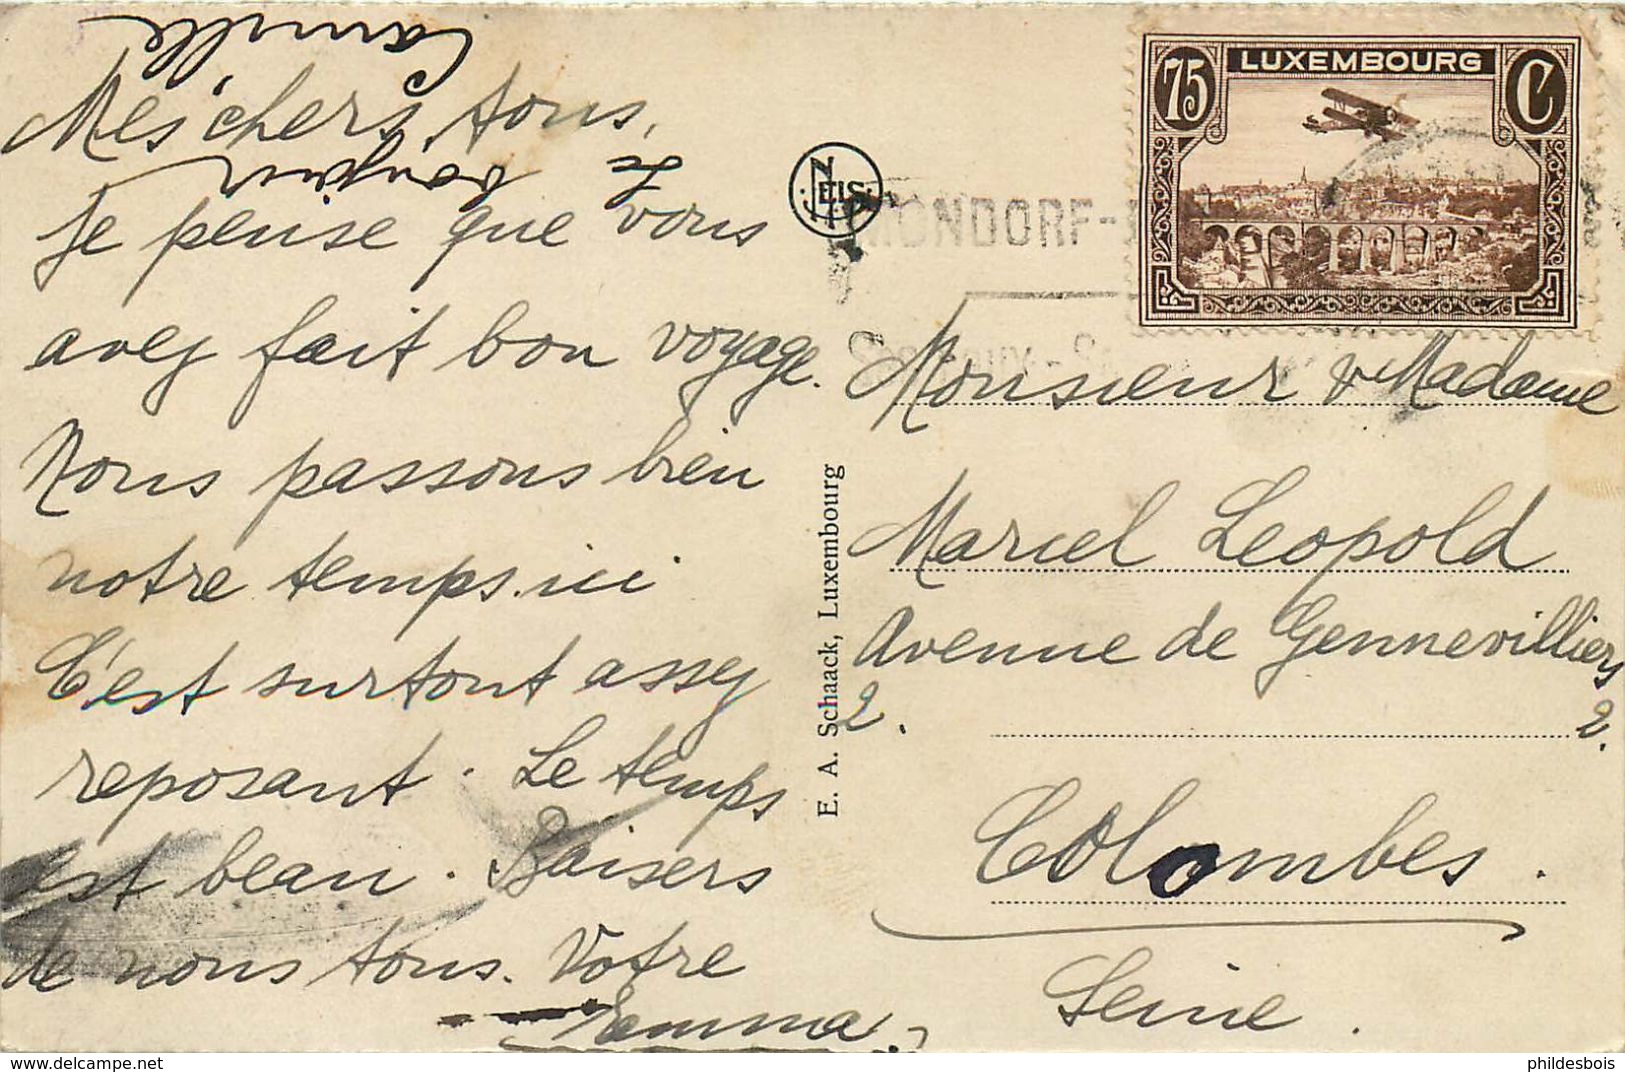 Camille
Mes chers tous,
Le bonjour
je pense que vous
avez fait bon voyage.
Nous passons bien
notre temps ici
C'est surtout assez
reposant. Le temps
est beau. Baisers
de nous tous. Votre
Emma.
NELS
E. A. Schaack, Luxembourg
LUXEMBOURG
75 C
MONDORF-
Monsieur & Madame
Marcel Leopold
Avenue de Gennevilliers
2. 2.
Colombes.
Seine.
phildesbois